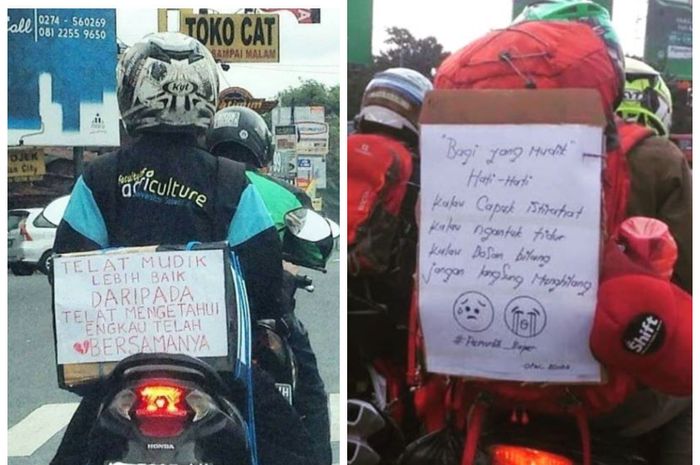 Call
0274 - 560269
081 2255 9650
TOKO CAT
SAMPAI MALAM
KYT
Faculty
agriculture
TELAT MUDIK
LEBIH BAIK
DARIPADA
TELAT MENGETAHUI
ENGKAU TELAH
BERSAMANYA
HONDA
"Bagi yang Mudik"
Hati-Hati
Kalau Capek istirahat
Kalau ngantuk tidur
Kalau Bosan bilang
jangan langsung Menghilang
#Pemudik_Baper
Shift